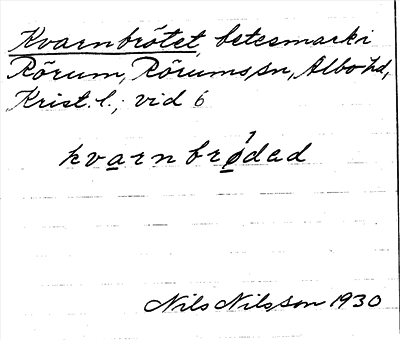 Kvarnbrötet, betesmark i
Rörum, Rörums sn, Albo hd,
Krist. l.; vid 6
kvarnbrødad
Nils Nilsson 1930